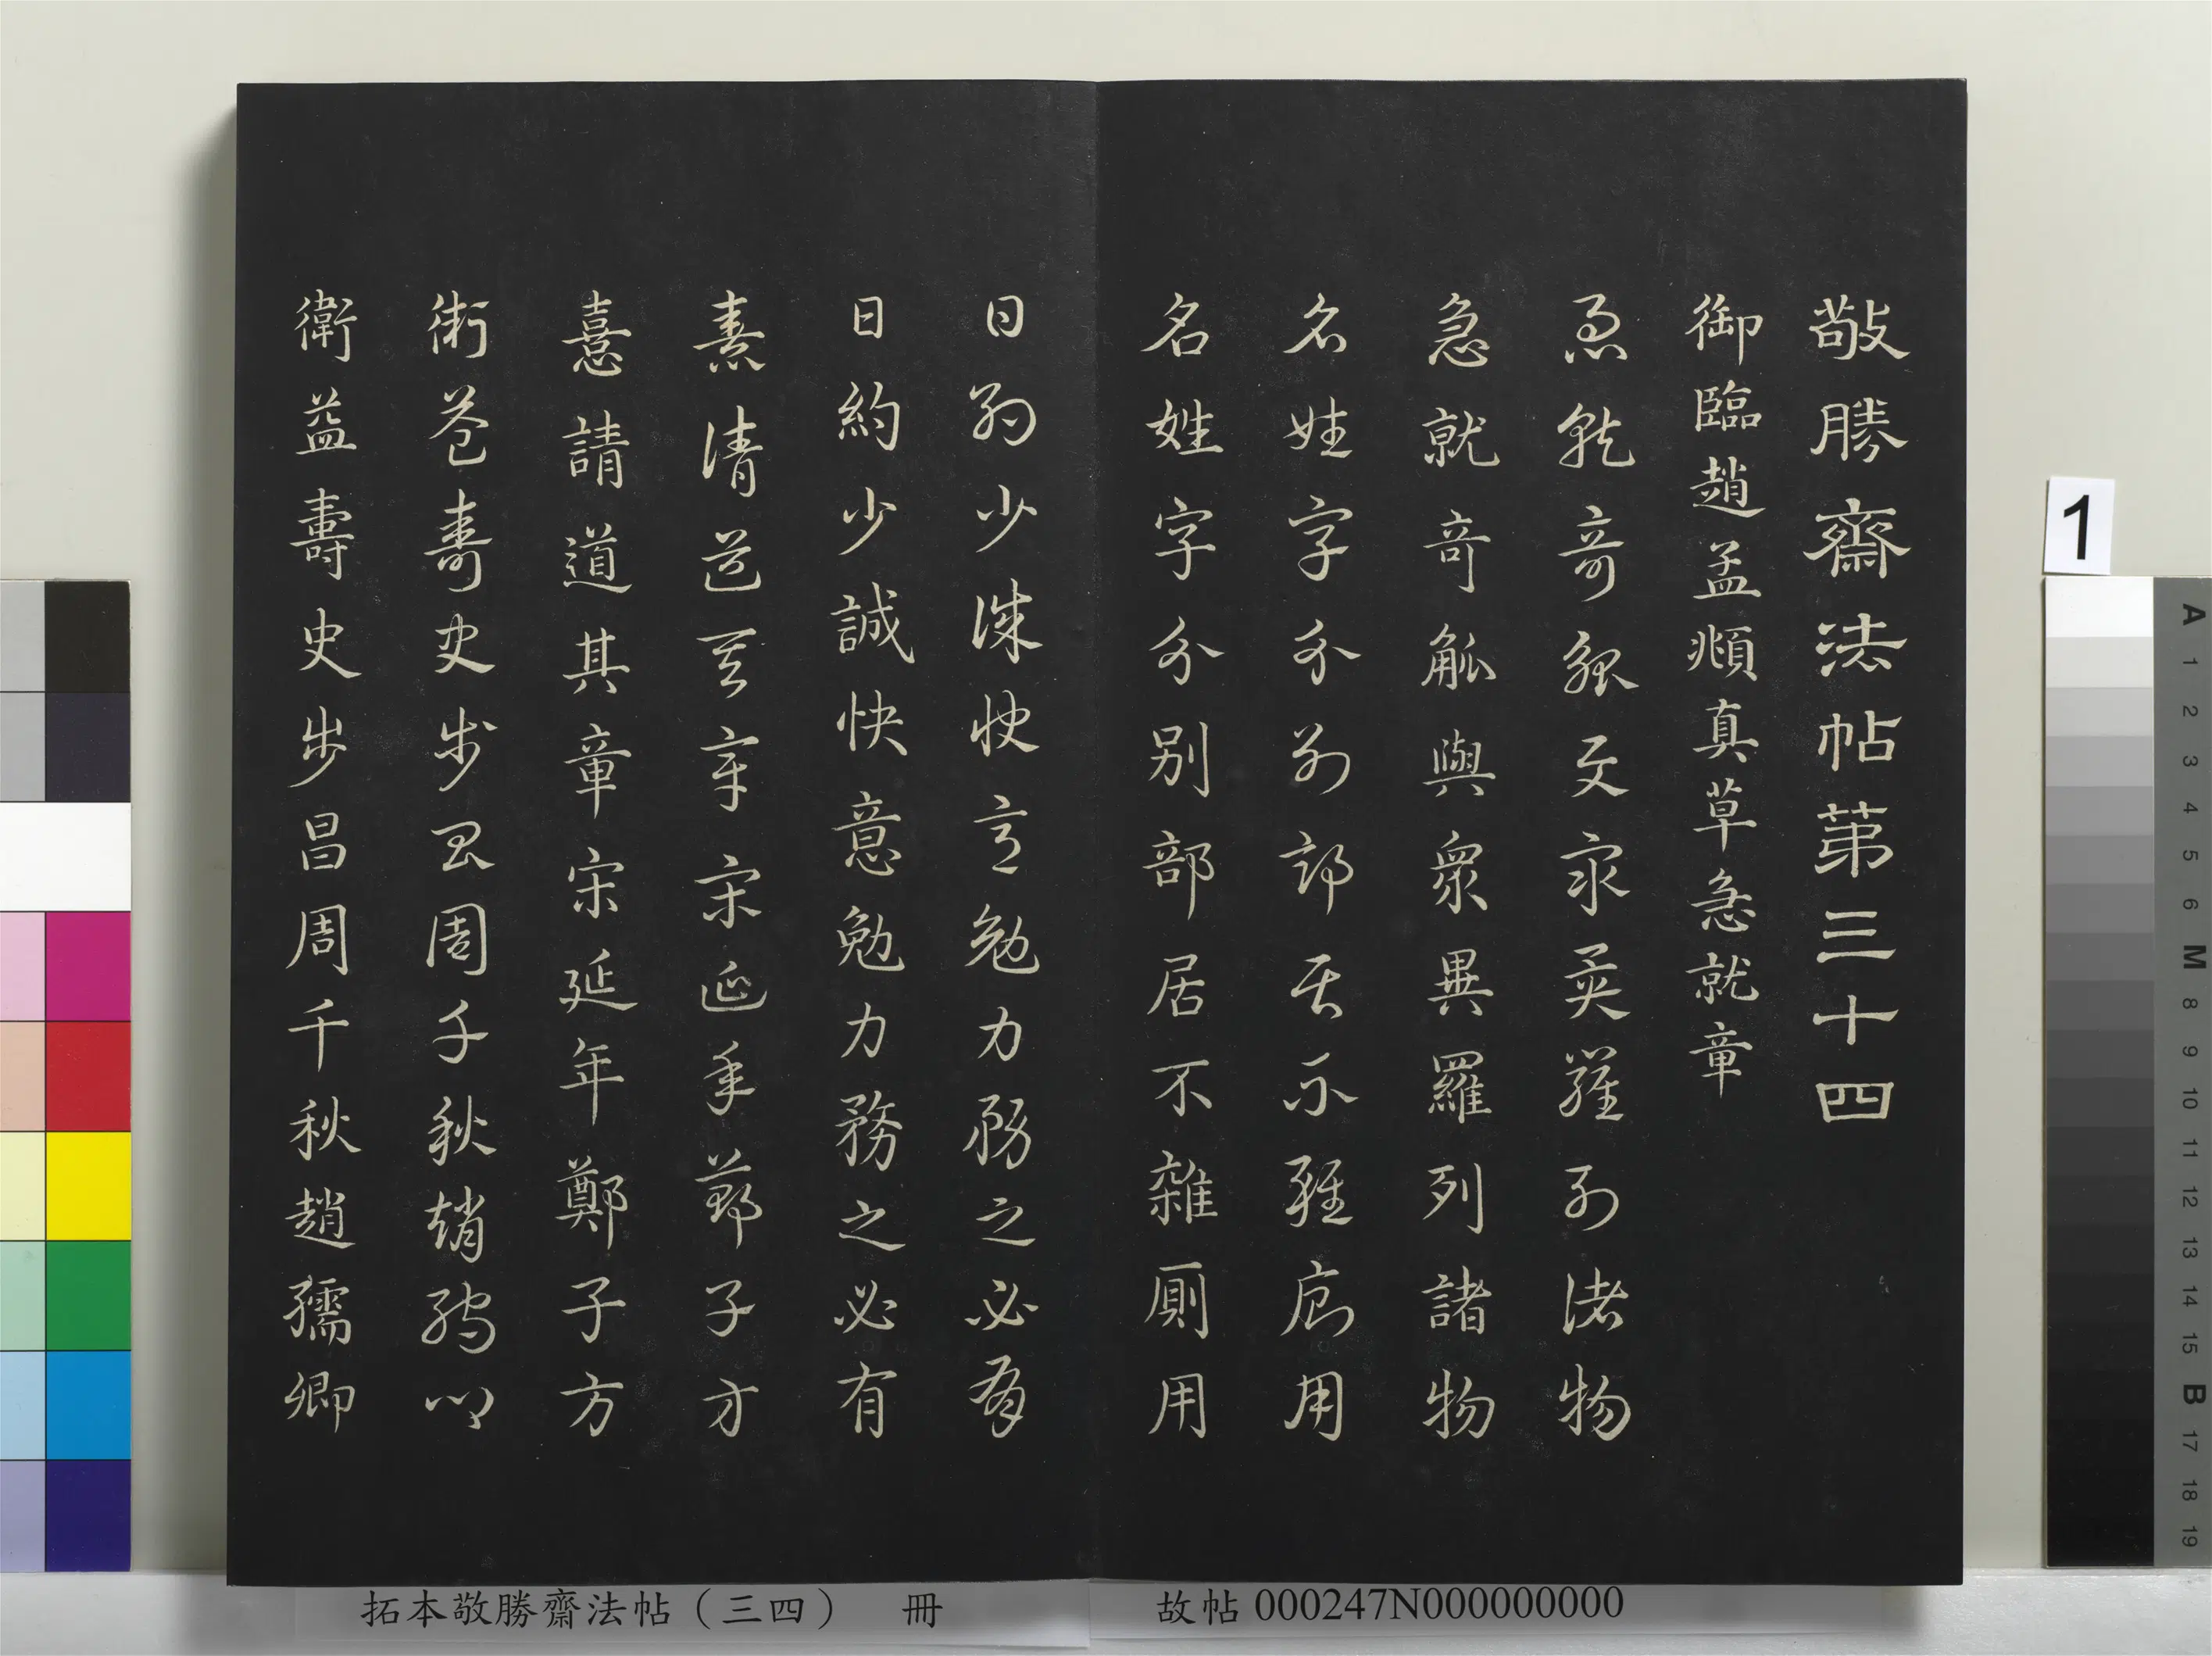 敬勝齋法帖第三十四
御臨趙孟頫真草急就章
急就奇觚與衆異羅列諸物
急就奇觚與衆異羅列諸物
名姓字分別部居不雜廁用
名姓字分別部居不雜廁用
日約少誠快意勉力務之必有
日約少誠快意勉力務之必有
憙請道其章宋延年鄭子方
憙請道其章宋延年鄭子方
衛益壽史步昌周千秋趙孺卿
衛益壽史步昌周千秋趙孺卿
拓本敬勝齋法帖（三四） 冊
故帖000247N000000000
1
A
1
2
3
4
5
6
M
8
9
10
11
12
13
14
15
B
17
18
19